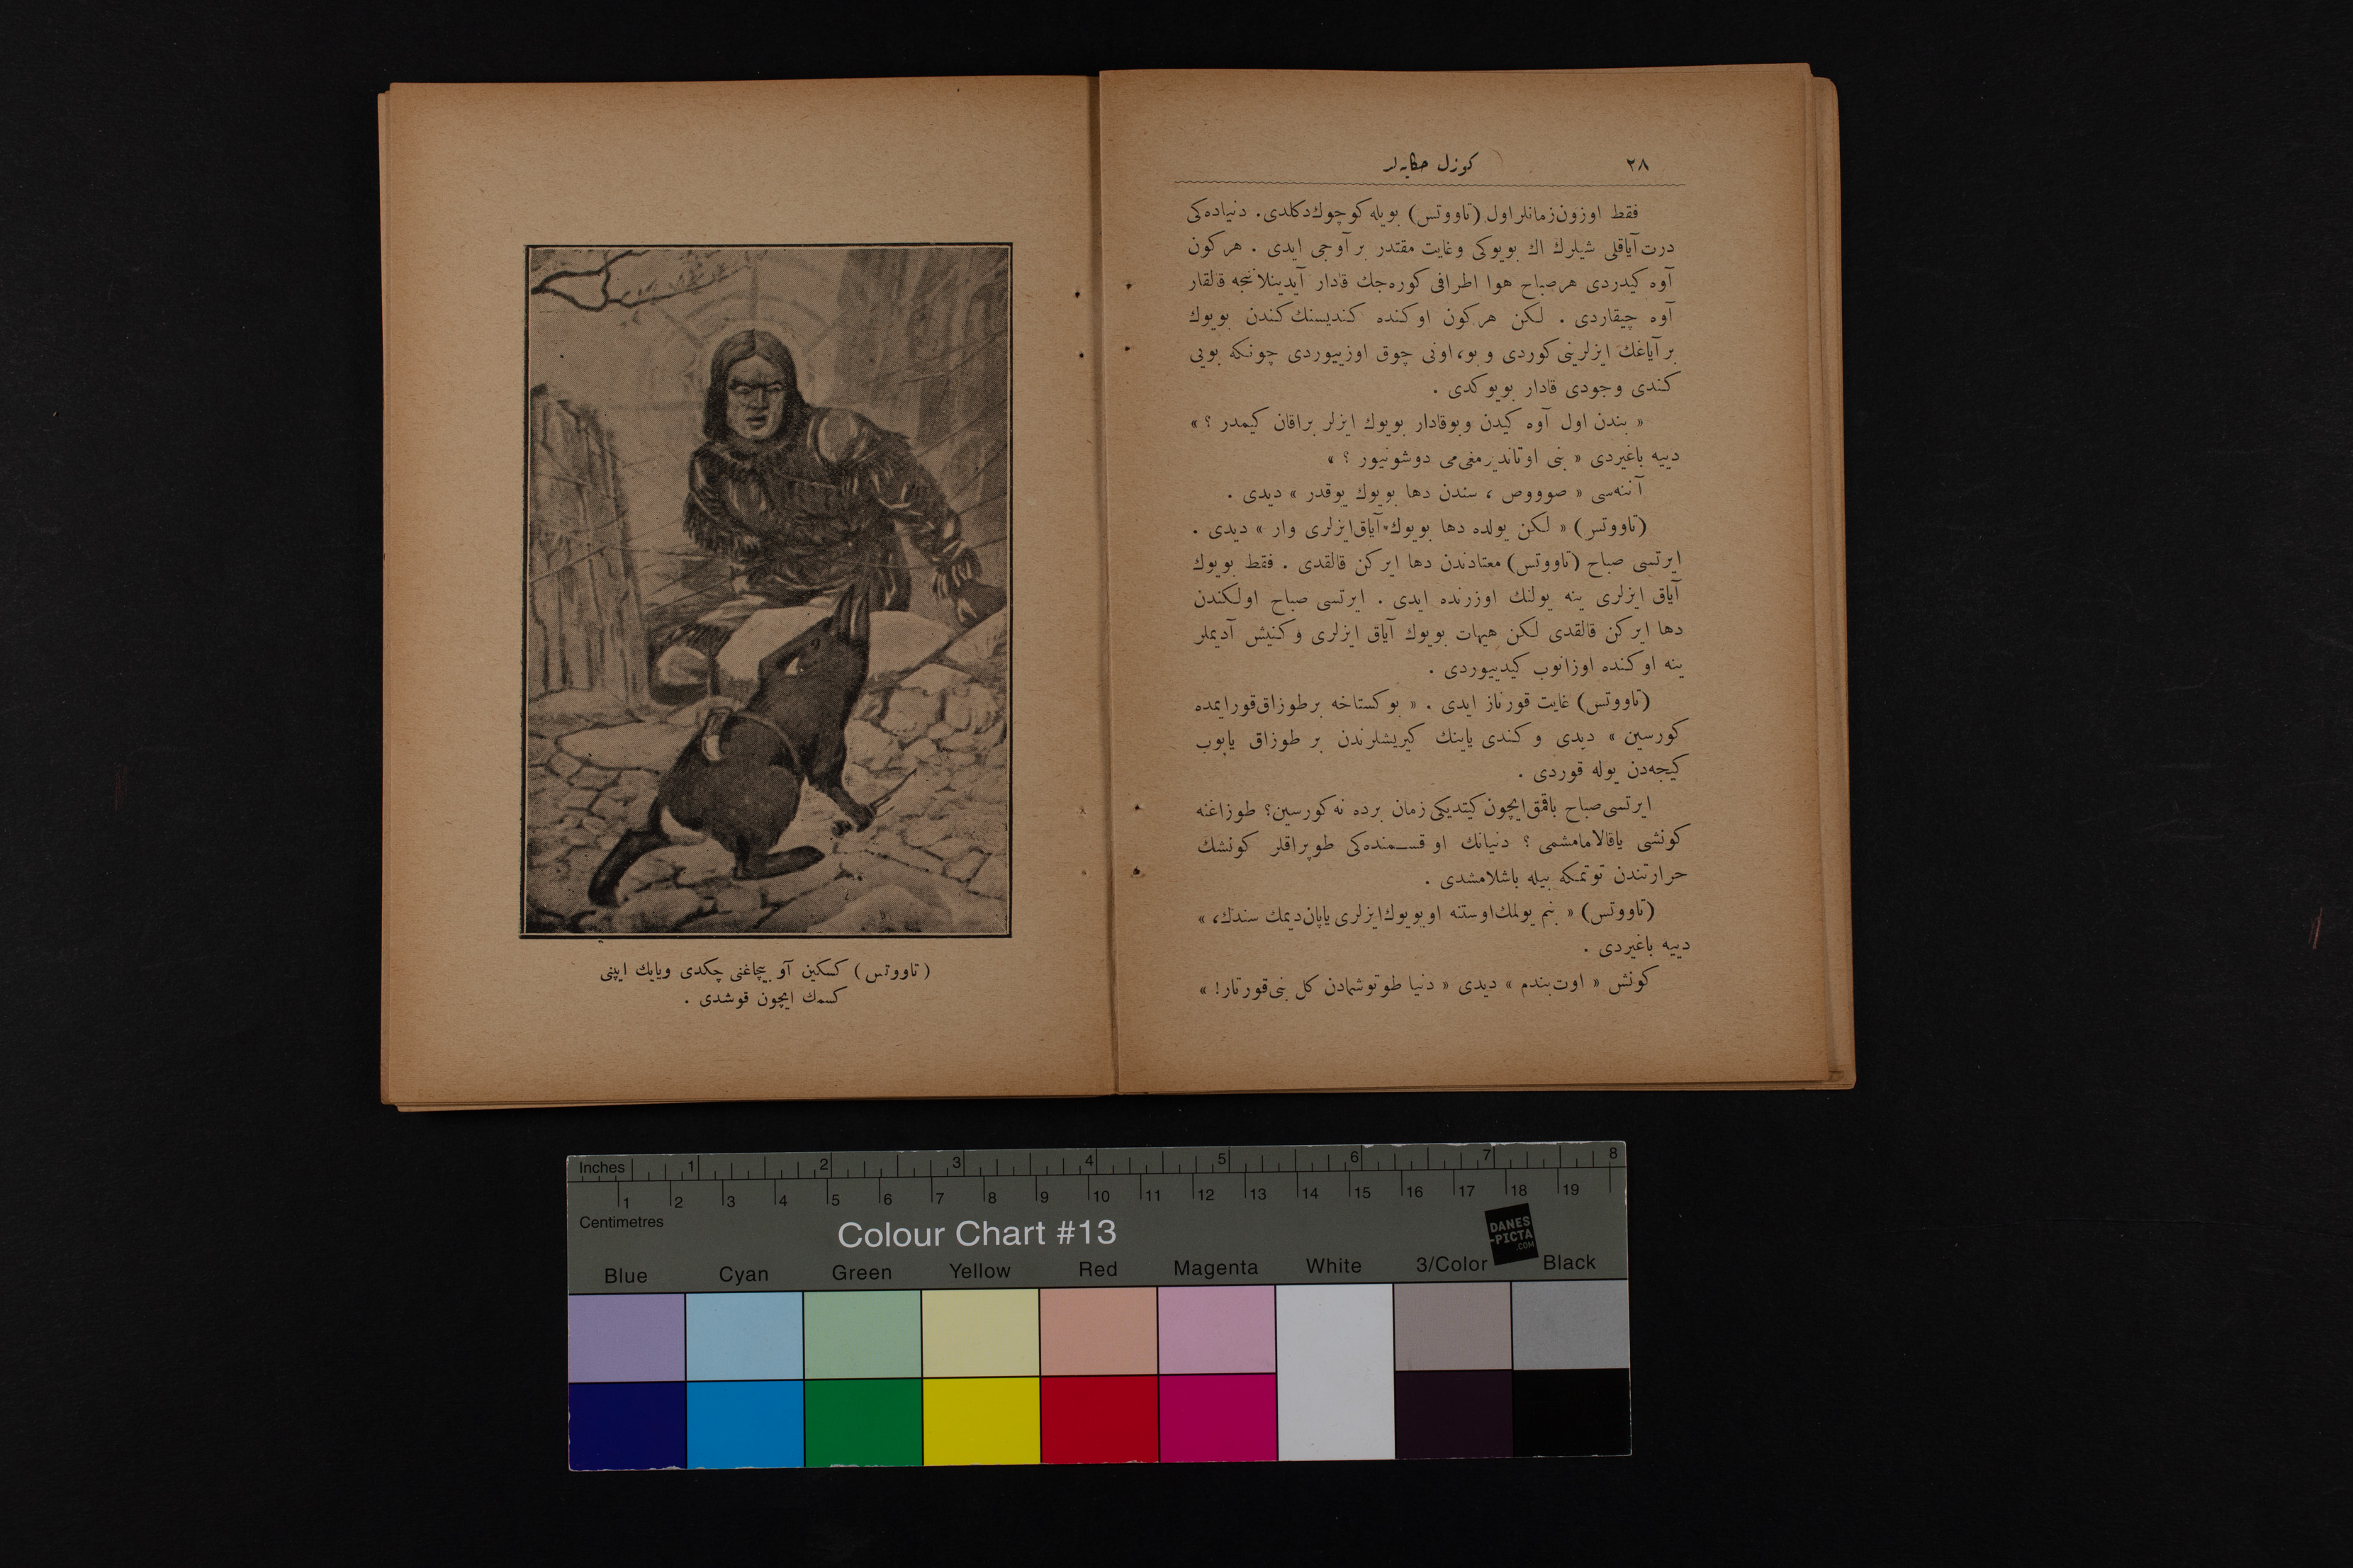 ٢٨
كوزل حكايه‌لر
فقط اوزون زمانلر اول (تاووتس) بويله كوچوك دكلدى. دنياده‌كى
درت آياقلى شيلرك اك بويوكى وغايت مقتدر بر آوجى ايدى . هر كون
آوه كيدردى هر صباح هوا اطرافى كوره‌جك قادار آيدينلانجه قالقار
آوه چيقاردى . لكن هر كون اوكنده كنديسنك‌كندن بويوك
بر آياغك ايزلرينى كوردى و بو، اونى چوق اوزييوردى چونكه بويى
كندى وجودى قادار بويوكدى .
« بندن اول آوه كيدن وبوقادار بويوك ايزلر براقان كيمدر ؟ »
دييه باغيردى « بنى اوتانديرمغى‌مى دوشونيور ؟ »
آننه‌سى « صوووص ، سندن دها بويوك يوقدر » ديدى .
(تاووتس) « لكن يولده دها بويوك آياق ايزلرى وار » ديدى .
ايرتسى صباح (تاووتس) معتادندن دها ايركن قالقدى . فقط بويوك
آياق ايزلرى ينه يولنك اوزرنده ايدى . ايرتسى صباح اولكندن
دها ايركن قالقدى لكن هيهات بويوك آياق ايزلرى وكنيش آديملر
ينه اوكنده اوزانوب كيدييوردى .
(تاووتس) غايت قورناز ايدى . « بو كستاخه بر طوزاق قورايمده
كورسين » ديدى و كندى ياينك كيريشلرندن بر طوزاق ياپوب
كيجه‌دن يوله قوردى .
ايرتسى صباح باقمق ايچون كيتديكى زمان برده نه كورسين؟ طوزاغنه
كونشى ياقالامامشمى ؟ دنيانك او قسمنده‌كى طوپراقلر كونشك
حرارتندن توتمكه بيله باشلامشدى .
(تاووتس) « بنم يولمك اوستنه او بويوك ايزلرى ياپان ديمك سندك، »
دييه باغيردى .
كونش « اوت بندم » ديدى « دنيا طوتوشمادن كل بنى قورتار! »
(تاووتس) كسكين آو بيچاغنى چكدى وياىك ايپنى
كسمك ايچون قوشدى .
Inches 1 2 3 4 5 6 7 8
1 2 3 4 5 6 7 8 9 10 11 12 13 14 15 16 17 18 19
Centimetres
Colour Chart #13
DANES
-PICTA
.COM
Blue Cyan Green Yellow Red Magenta White 3/Color Black